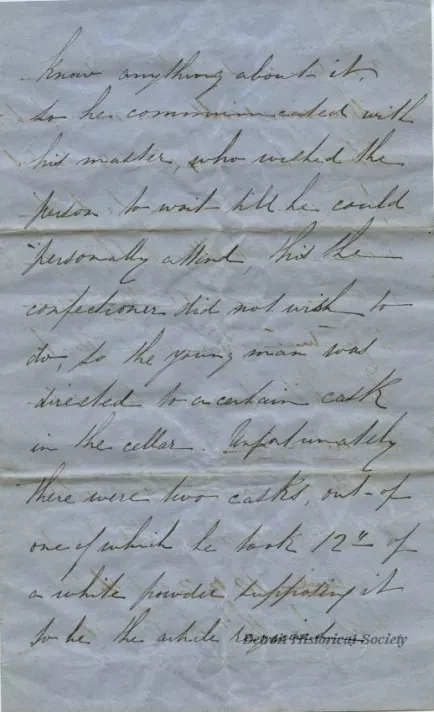 know anything about it,
so he communicated with
his master, who wished the
person to wait till he could
personally attend, this the
confectioner did not wish to
do, so the young man was
directed to a certain cask
in the cellar. Unfortunately
there were two casks, out of
one of which he took 12 of
a white powder supposing it
to be the article required
Detroit Historical Society